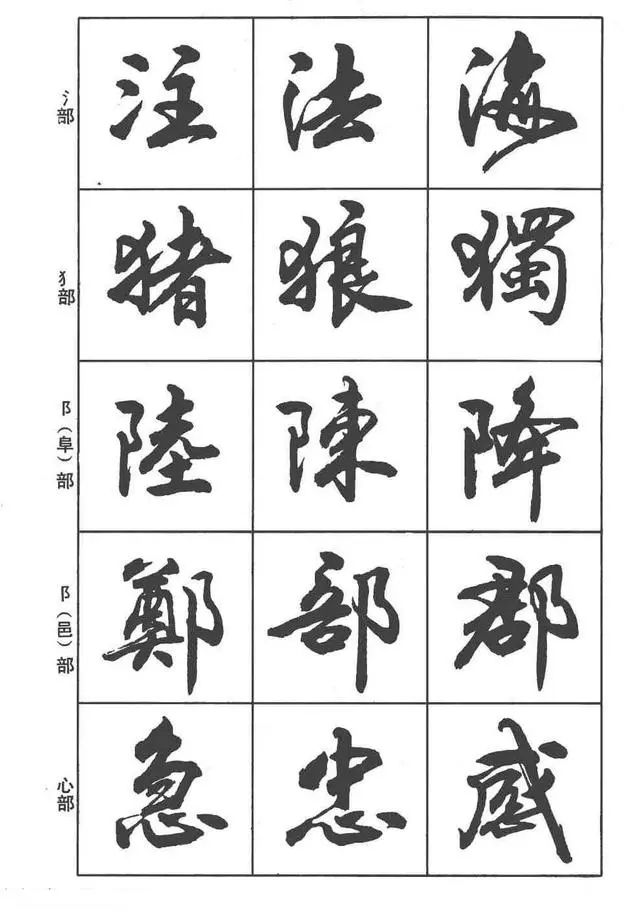 氵部
注 法 海
犭部
猪 狼 獨
阝(阜)部
陸 陳 降
阝(邑)部
鄭 部 郡
心部
急 忠 感